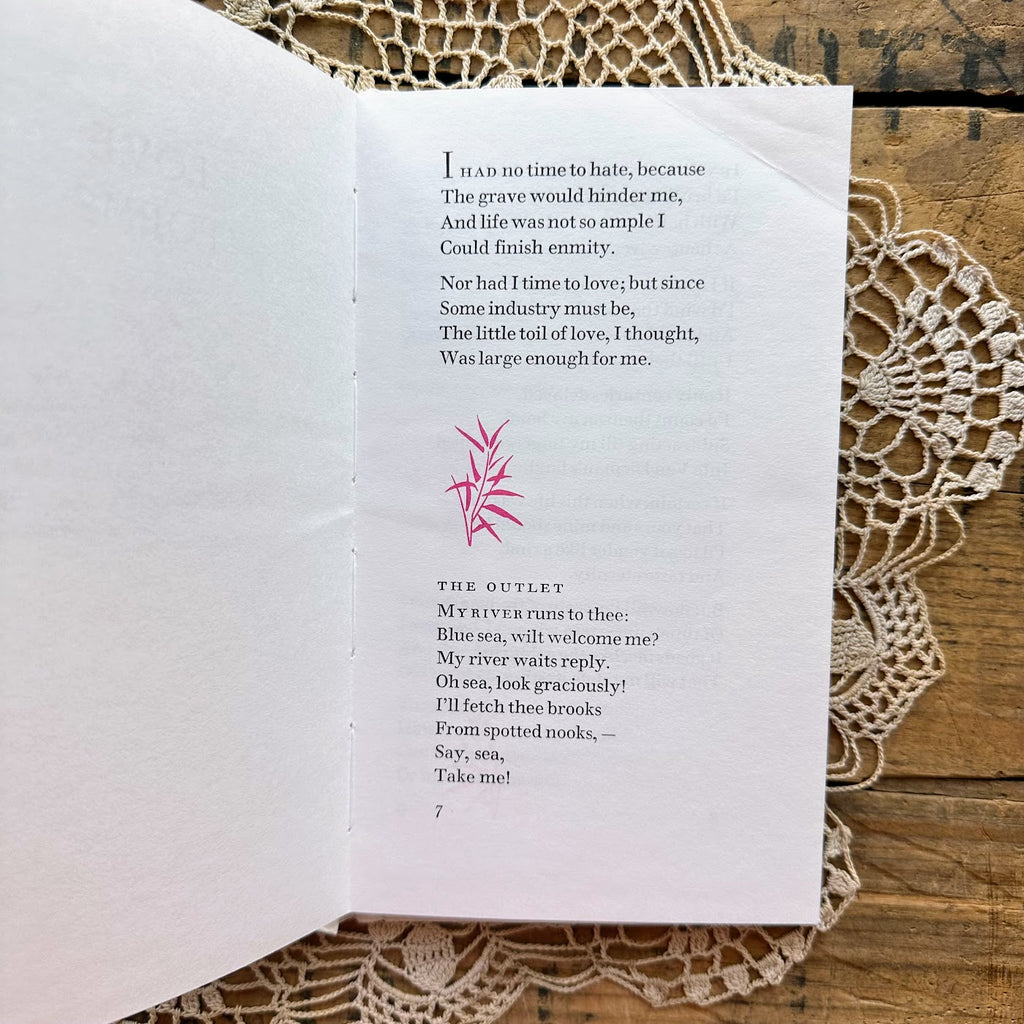 I HAD no time to hate, because
The grave would hinder me,
And life was not so ample I
Could finish enmity.
Nor had I time to love; but since
Some industry must be,
The little toil of love, I thought,
Was large enough for me.
THE OUTLET
MY RIVER runs to thee:
Blue sea, wilt welcome me?
My river waits reply.
Oh sea, look graciously!
I'll fetch thee brooks
From spotted nooks, —
Say, sea,
Take me!
7